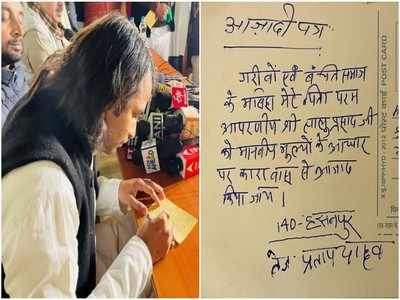 ANI
आज़ादी पत्र
गरीबों एवं वंचित समाज
के मसिहा मेरे पिता परम
आदरणीय श्री लालु प्रसाद जी
को मानवीय मूल्यों के आधार
पर कारावास से आजाद
किया जाय ।
140-हसनपुर
तेज प्रताप यादव
2012 पोस्ट कार्ड POST CARD